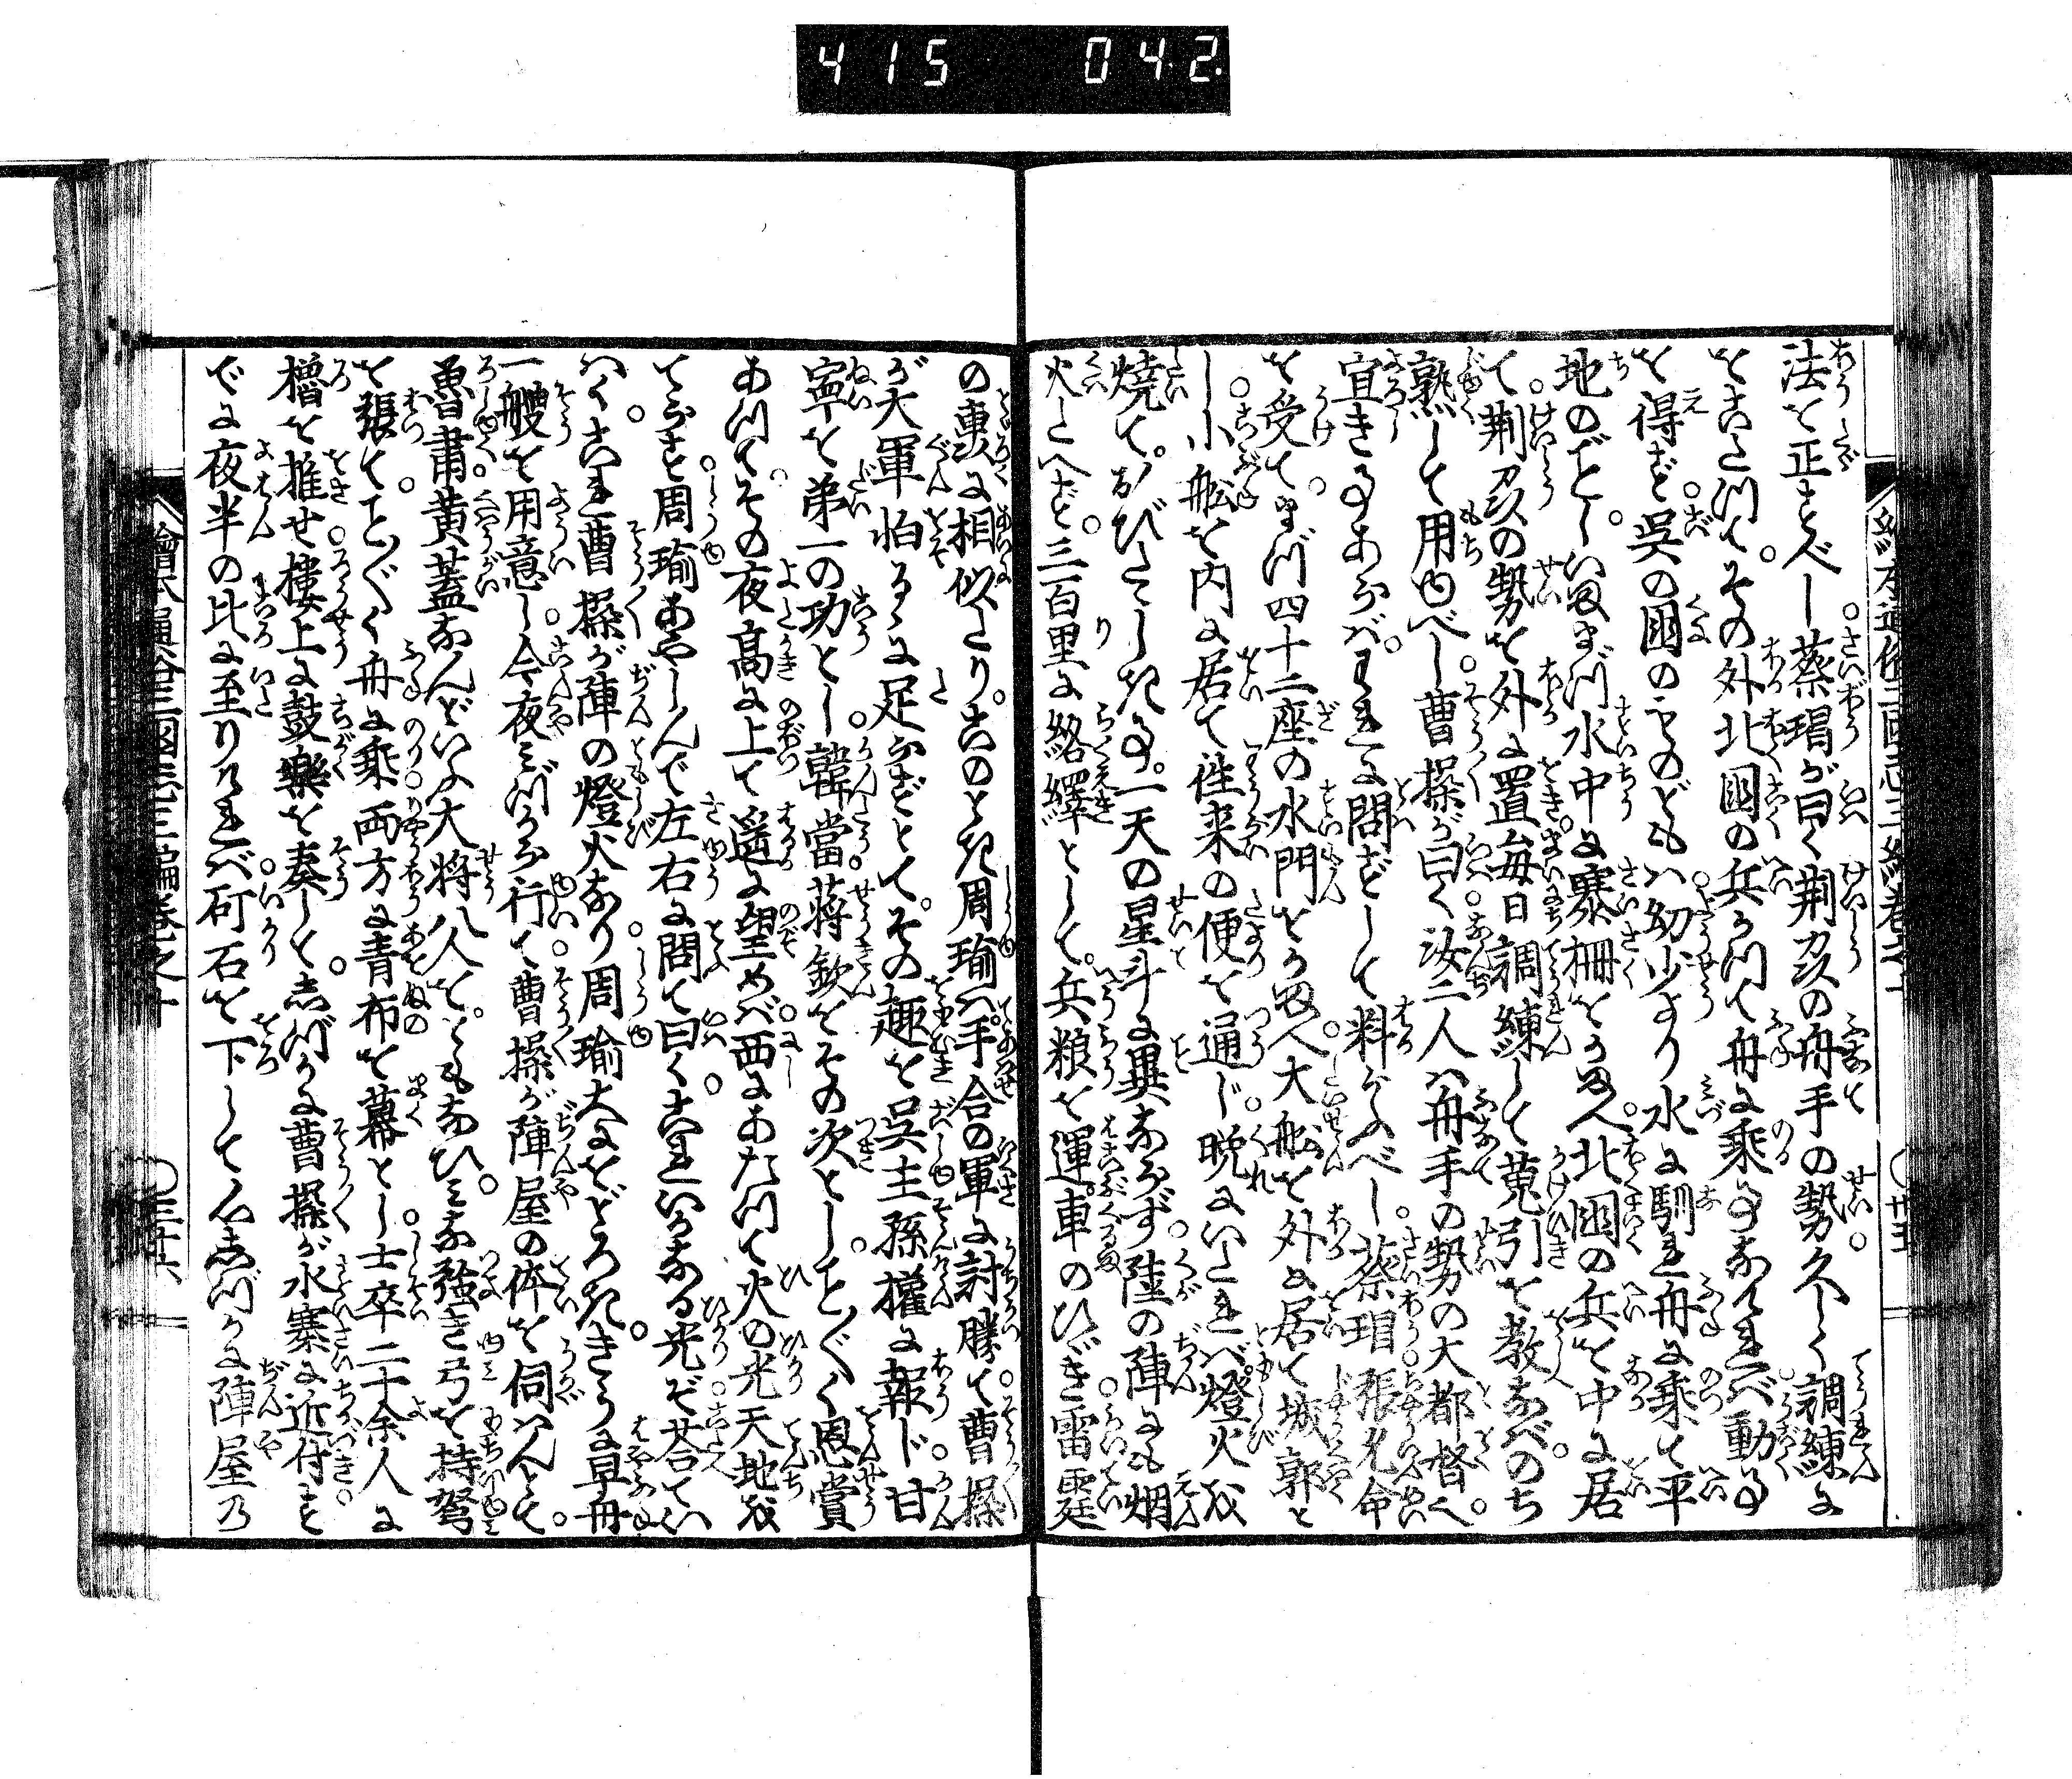 415 042
繪本通俗三國志三編卷之十
廿五
法を正すべし蔡瑁が曰く荆州の舟手の勢久しく調練に
をこたつて。その外北國の兵かつて舟に乘事なければ動事
を得ず呉の國のものどもハ幼少より水に馴れ舟に乘て平
地のごとし。いままづ水中に寨柵をかまへ。北國の兵を中に居
て荆州の勢を外に置毎日調練して蒐引を教なバのち
熟して用ゆべし曹操が曰く汝二人ハ舟手の勢の大都督へ。
宜き事あらバ。われに問ずして料らふべし蔡瑁張允命
を受て。まづ四十二座の水門をかまへ大舩を外に居て城郭と
し小舩を内に居て徃来の便を通じ。晩にいたれバ燈火を
燒て。おびたゝしき事。一天の星斗に異ならず陸の陣にも烟
火たへず。三百里に絡繹として。兵粮を運車のひゞき雷霆
の轟に相似たり。このとき周瑜ハ手合の軍に討勝て曹操
が大軍怕るゝに足ずとて。その趣を呉主孫權に報じ甘
寧を第一の功とし韓當。蒋欽をその次とし。こと〴〵く恩賞
あつて。その夜高に上て遥に望めバ西にあたつて火の光天地を
てらす周瑜あやしんで左右に問て曰く。これいかなる光ぞ荅てい
はく。これ曹操が陣の燈火なり周瑜大におどろき。きうに早舟
一艘を用意し今夜ミづから行て曹操が陣屋の体を伺ハんとて。
魯肅黄蓋なんどいふ大将八人を。ともなひ。ミな強き弓を持弩
を張てこと〴〵く舟に乘両方に青布を幕とし士卒二十余人に
櫓を推せ樓上に鼓樂を奏して。志づかに曹操が水寨に近付す
でに夜半の比に至りけれバ矴石を下して。志づかに陣屋乃
繪本通俗三國志三編卷之十
二十六